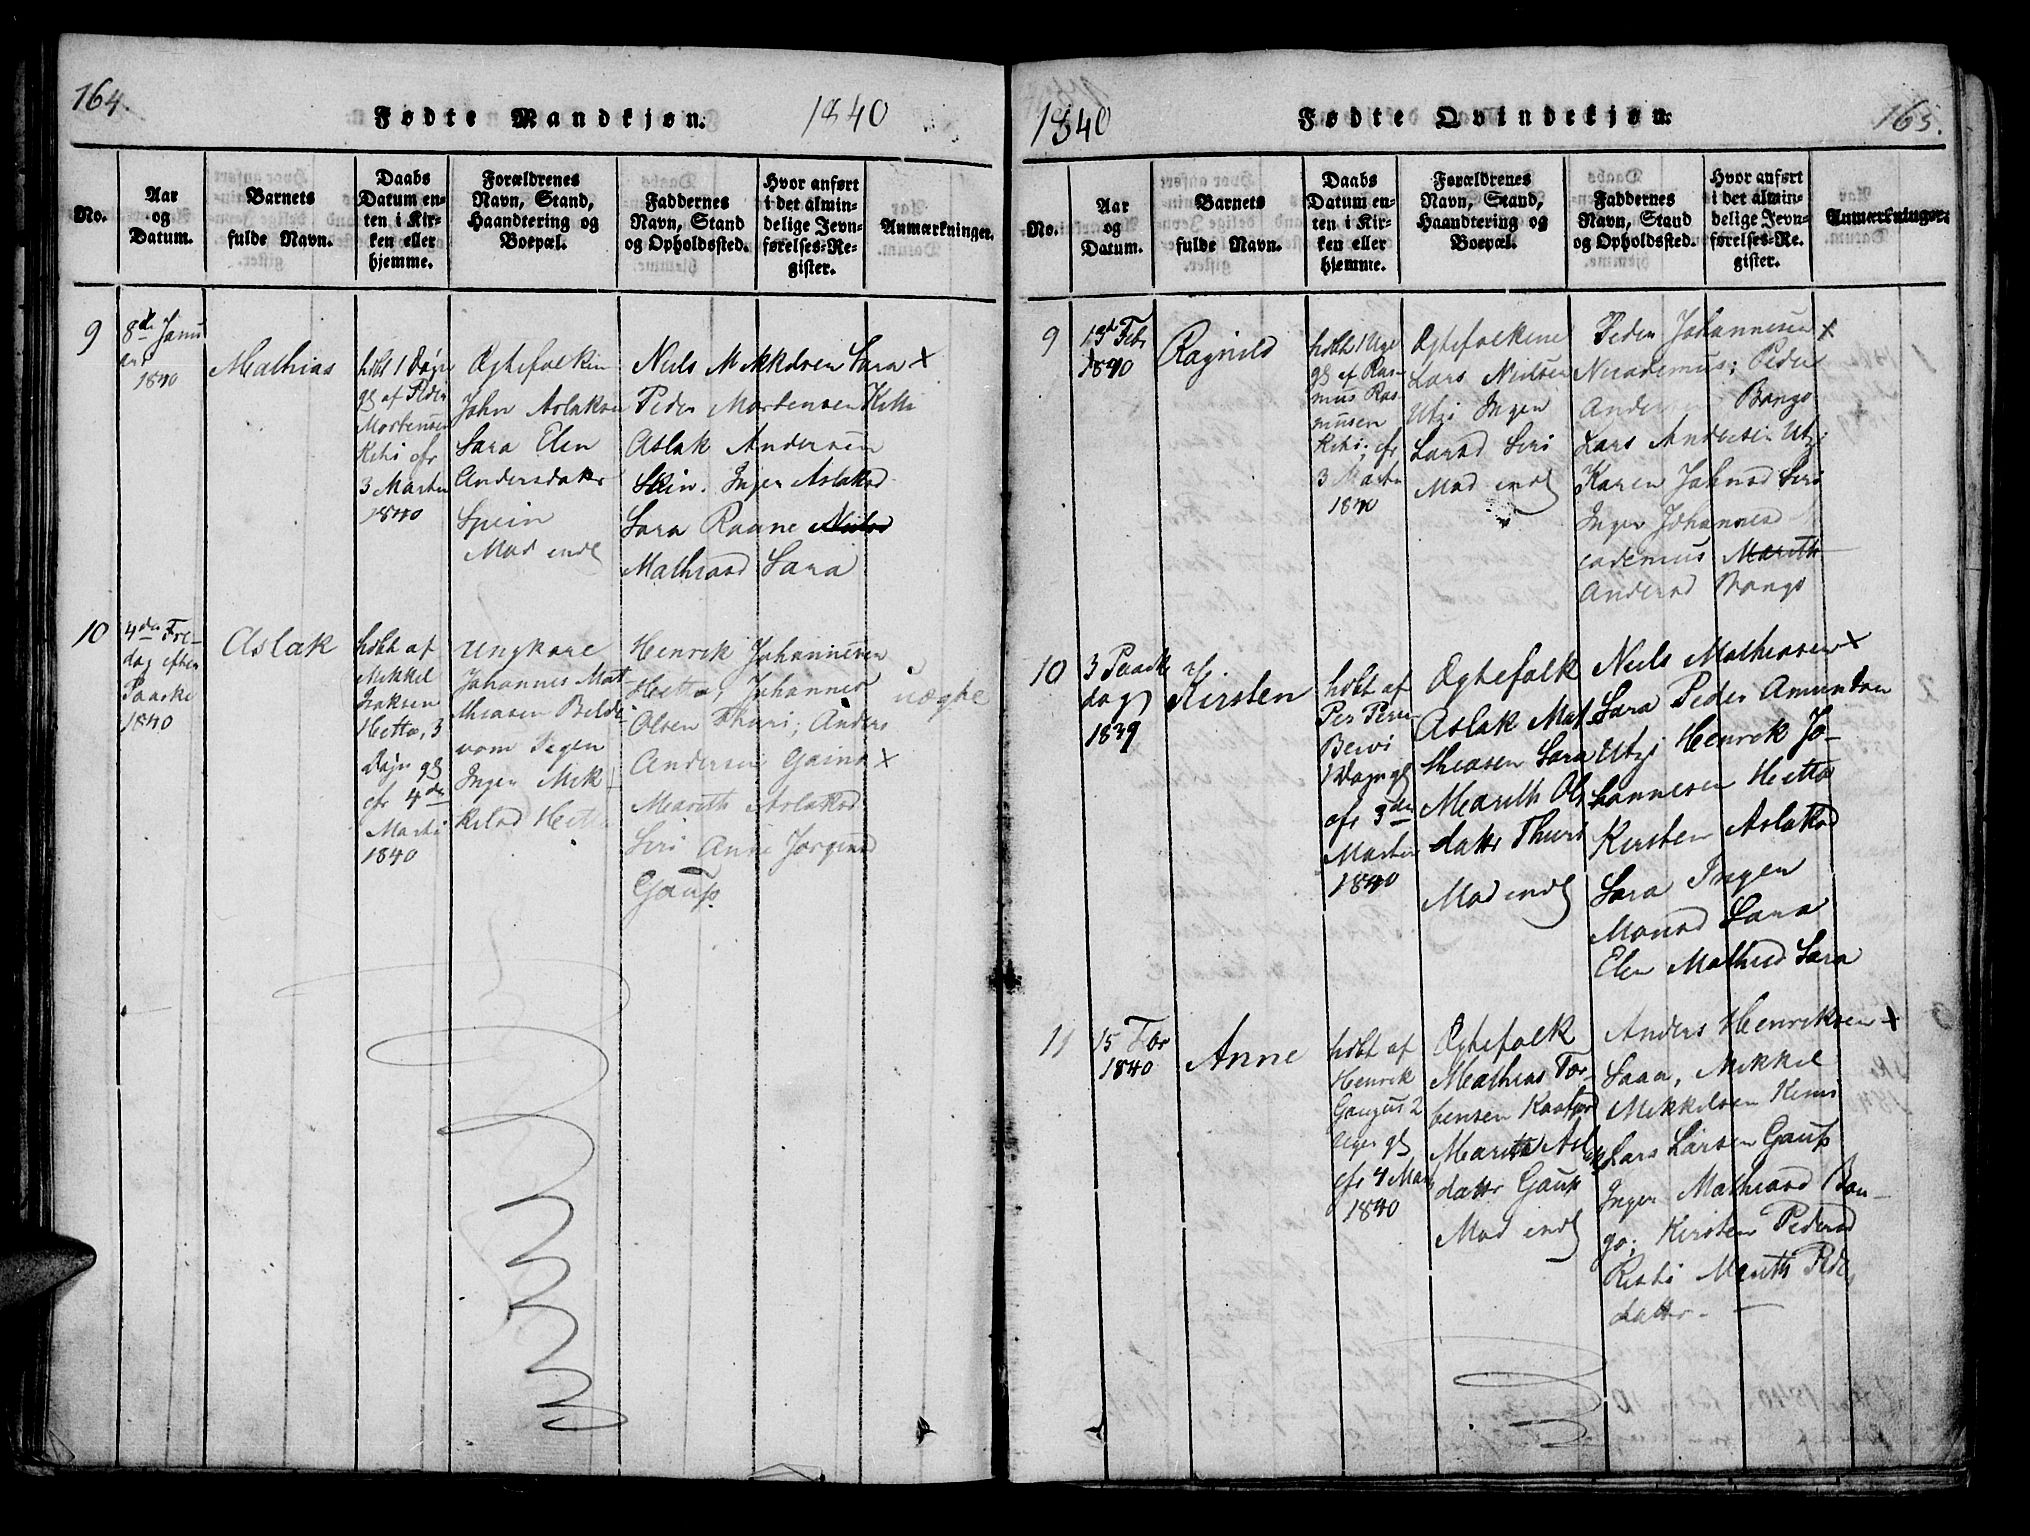 164.
Fødte Mandkjøn.
1840
No.
Aar
og
Datum.
Barnets
fulde Navn.
Daabs
Datum en-
ten i Kir-
ken eller
hjemme.
Forældrenes
Navn, Stand,
Haandtering og
Boepæl.
Faddernes
Navn, Stand
og Opholdssted.
Hvor anført
i det almin-
delige Jevn-
førelses-Re-
gister.
Anmærkninger.
9
8de Janu
1840
Mathias
hbt 1 Dagn
gl af Peder
Mortensen
Kitti cfr
3 Marts
1840
Ægtefolkene
John Aslaksen
Sara Elen
Andersdatr
Spein
Mad indl
Niels Mikkelsen Sara ×
Peder Mortensen Kitti
Aslak Andersen
Skin. Inger Aslaksd
Sara Raane
Mathisd Sara
10
4de Fre-
dag efter
Paaske
1840
Aslak
hbt af
Mikkel
Isaksen
Hetta, 3
Dagn gl
cfr 4de
Marts
1840
Ungkarl
Johannes Mat
thiasen
Pigen
Inger Mik
kelsd Hetta
Henrik Johannesen
Hetta, Johannes
Olsen Thuri; Anders
Andersen Gaino ×
Marith Aslaksd
Siri Anne Jørgensd
Gaup.
uægte
1840
Fødte Qvindekjøn.
165.
No.
Aar
og
Datum.
Barnets
fulde Navn.
Daabs
Datum en-
ten i Kir-
ken eller
hjemme.
Forældrenes
Navn, Stand,
Haandtering og
Boepæl.
Faddernes
Navn, Stand
og Opholdssted.
Hvor anført
i det almin-
delige Jevn-
førelses-Re-
gister.
Anmærkninger.
9
13de Feb
1840
Ragnild
hbt 1 Uge
gl af Ras-
mus Ras-
musen
Kitti; cfr
3 Marts
1840
Ægtefolkene
Lars Nielsen
Utzi Inger
Larsd Siri
Mad indl
Peder Johannesen ×
Nicodemus; Peder
Anders Bongo
Lars Andersen Utzi
Karen Johnsd Siri
Inger Johannesd Ni
codemus Marith
Andersd Bongo
10
3 Paaske
dag
1839
Kirsten
hbt af
Per Persen
1 Dagn gl
cfr 3de
Marts
1840
Ægtefolk
Aslak Mat
thiasen Sara
Marith Ols
datter Thuri
Mad indl
Niels Mathiasen ×
Sara Peder Amundsen
Utzi Henrik Jo-
hannesen Hetta
Kirsten Aslaksd
Sara Inger
Monsd Sara
Elen Mathisd Sara
11
15 Febr
1840
Anne
hbt af
Henrik
2
Uger gl
cfr 4 Marts
1840
Ægtefolk
Mathias Tor-
bensen Kautzi
Marith Asl
datter Gaup
Mad indl
Anders Henriksen ×
Sara, Mikkel
Mikkelsen Kemi
Lars Larsen Gaup
Inger Mathisd Bon-
go; Kirsten Pedersd
Kitti Marith Peders
datter –